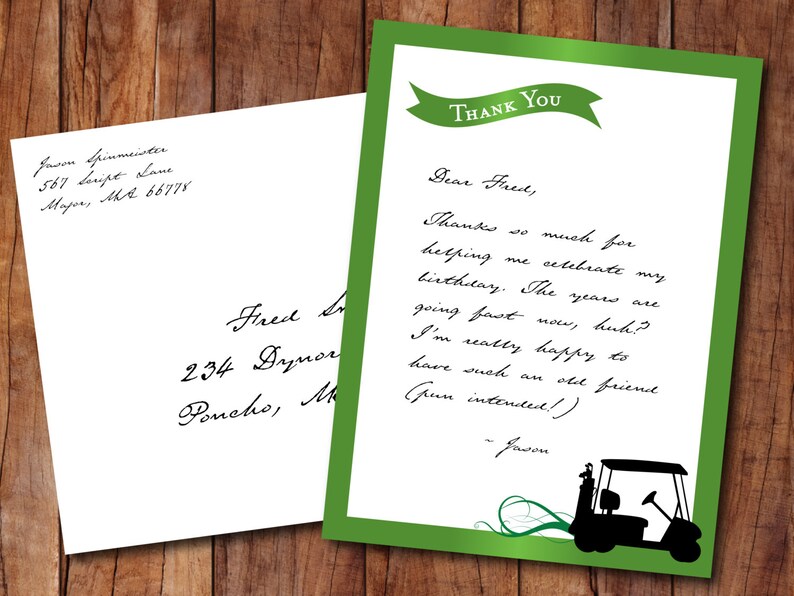 Jason Spinmeister
567 Script Lane
Major, MA 66778
Fred
234
Poncho,
Thank You
Dear Fred,
Thanks so much for
helping me celebrate my
birthday. The years are
going fast now, huh?
I'm really happy to
have such an old friend
(pun intended!)
~ Jason